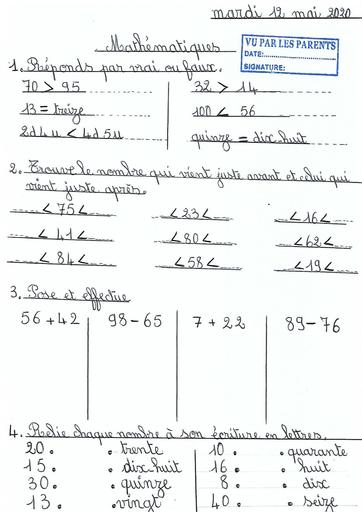 mardi 12 mai 2020
Mathématiques
VU PAR LES PARENTS
DATE:
SIGNATURE:
1. Réponds par vrai ou faux.
70 > 95 32 > 14
13 = treize 100 < 56
2d4u < 4d5u quinze = dix-huit
2. Trouve le nombre qui vient juste avant et celui qui
vient juste après.
< 75 < < 23 < < 16 <
< 41 < < 80 < < 62 <
< 84 < < 58 < < 19 <
3. Pose et effectue
56 + 42 98 - 65 7 + 22 89 - 76
4. Relie chaque nombre à son écriture en lettres.
20 . . trente 10 . . quarante
15 . . dix-huit 16 . . huit
30 . . quinze 8 . . dix
13 . . vingt 40 . . seize